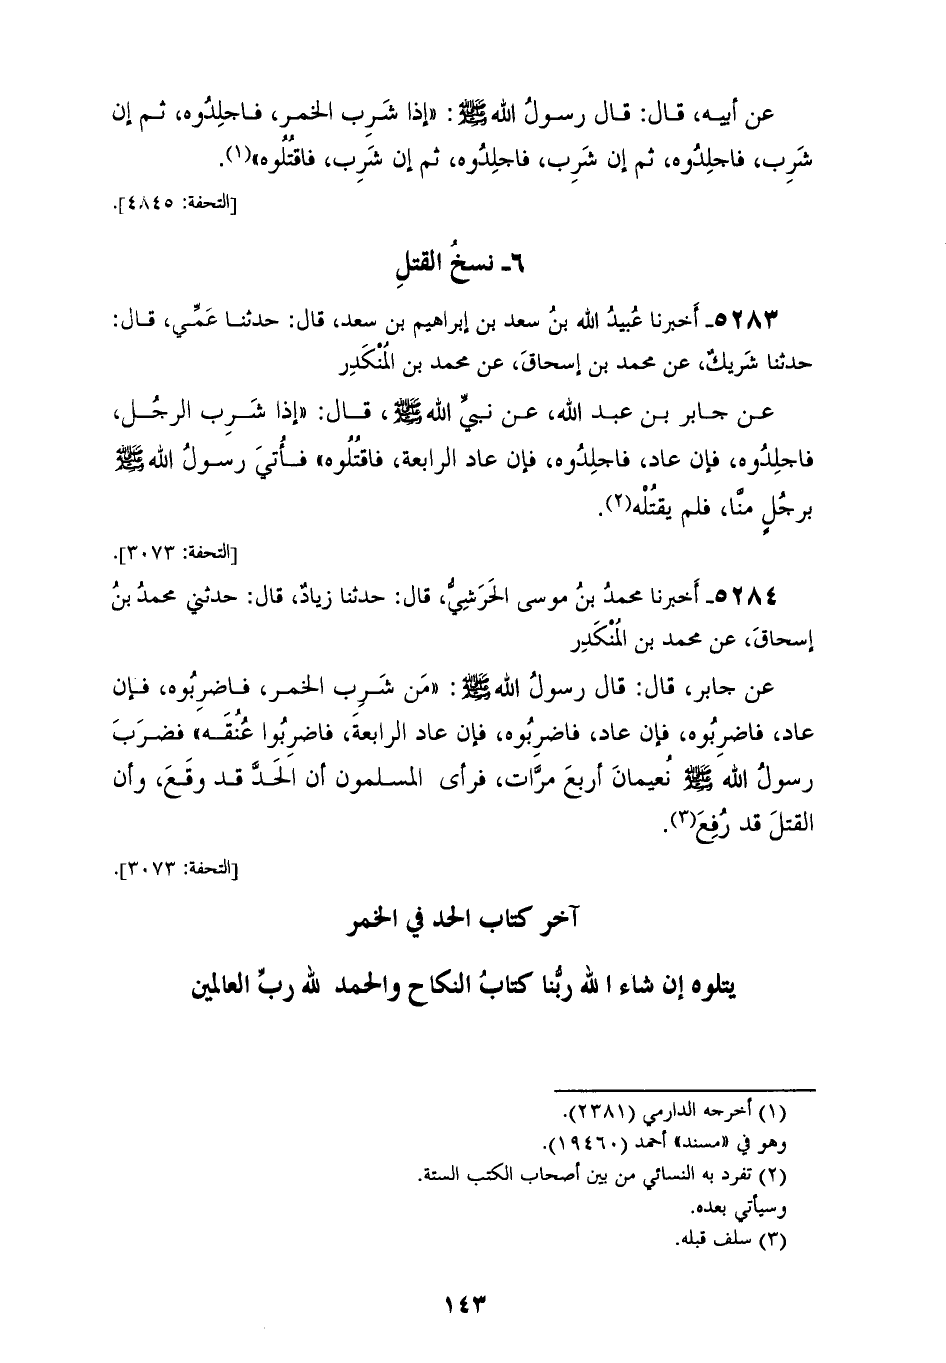 عن أبيه، قال: قال رسولُ الله ﷺ: «إذا شَرِب الخمر، فاجلِدُوه، ثم إن
شَرِب، فاجلِدُوه، ثم إن شَرِب، فاجلِدُوه، ثم إن شَرِب، فاقتُلُوه»(١).
[التحفة: ٤٨٤٥].
٦ـ نسخُ القتلِ
٥٢٨٣ـ أخبرنا عُبيدُ الله بنُ سعد بن إبراهيم بن سعد، قال: حدثنا عَمِّي، قال:
حدثنا شَريكٌ، عن محمد بن إسحاقَ، عن محمد بن المُنْكَدِر
عن جابر بن عبد الله، عن نبيِّ الله ﷺ، قال: «إذا شَرِب الرجُل،
فاجلِدُوه، فإن عاد، فاجلِدُوه، فإن عاد الرابعة، فاقتُلُوه» فأُتيَ رسولُ الله ﷺ
برجُلٍ منَّا، فلم يقتُلْه(٢).
[التحفة: ٣٠٧٣].
٥٢٨٤ـ أخبرنا محمدُ بنُ موسى الحَرَشِيُّ، قال: حدثنا زيادٌ، قال: حدثني محمدُ بنُ
إسحاقَ، عن محمد بن المُنْكَدِر
عن جابر، قال: قال رسولُ الله ﷺ: «مَن شَرِب الخمر، فاضرِبُوه، فإن
عاد، فاضرِبُوه، فإن عاد، فاضرِبُوه، فإن عاد الرابعةَ، فاضرِبُوا عُنُقَه» فضرَبَ
رسولُ الله ﷺ نُعيمانَ أربعَ مرَّات، فرأى المسلمون أن الحَدَّ قد وقَعَ، وأن
القتلَ قد رُفِعَ(٣).
[التحفة: ٣٠٧٣].
آخر كتاب الحد في الخمر
يتلوه إن شاء الله ربُّنا كتابُ النكاح والحمد لله ربِّ العالمين
(١) أخرجه الدارمي (٢٣٨١).
وهو في «مسند» أحمد (١٩٤٦٠).
(٢) تفرد به النسائي من بين أصحاب الكتب الستة.
وسيأتي بعده.
(٣) سلف قبله.
١٤٣